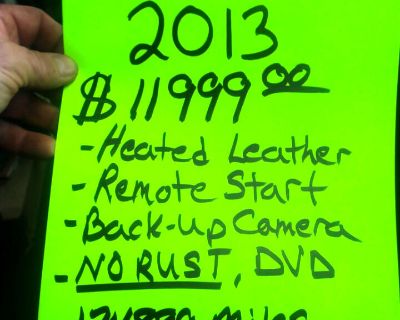 2013
$11999 00
- Heated Leather
- Remote Start
- Back-Up Camera
- NO RUST, DVD